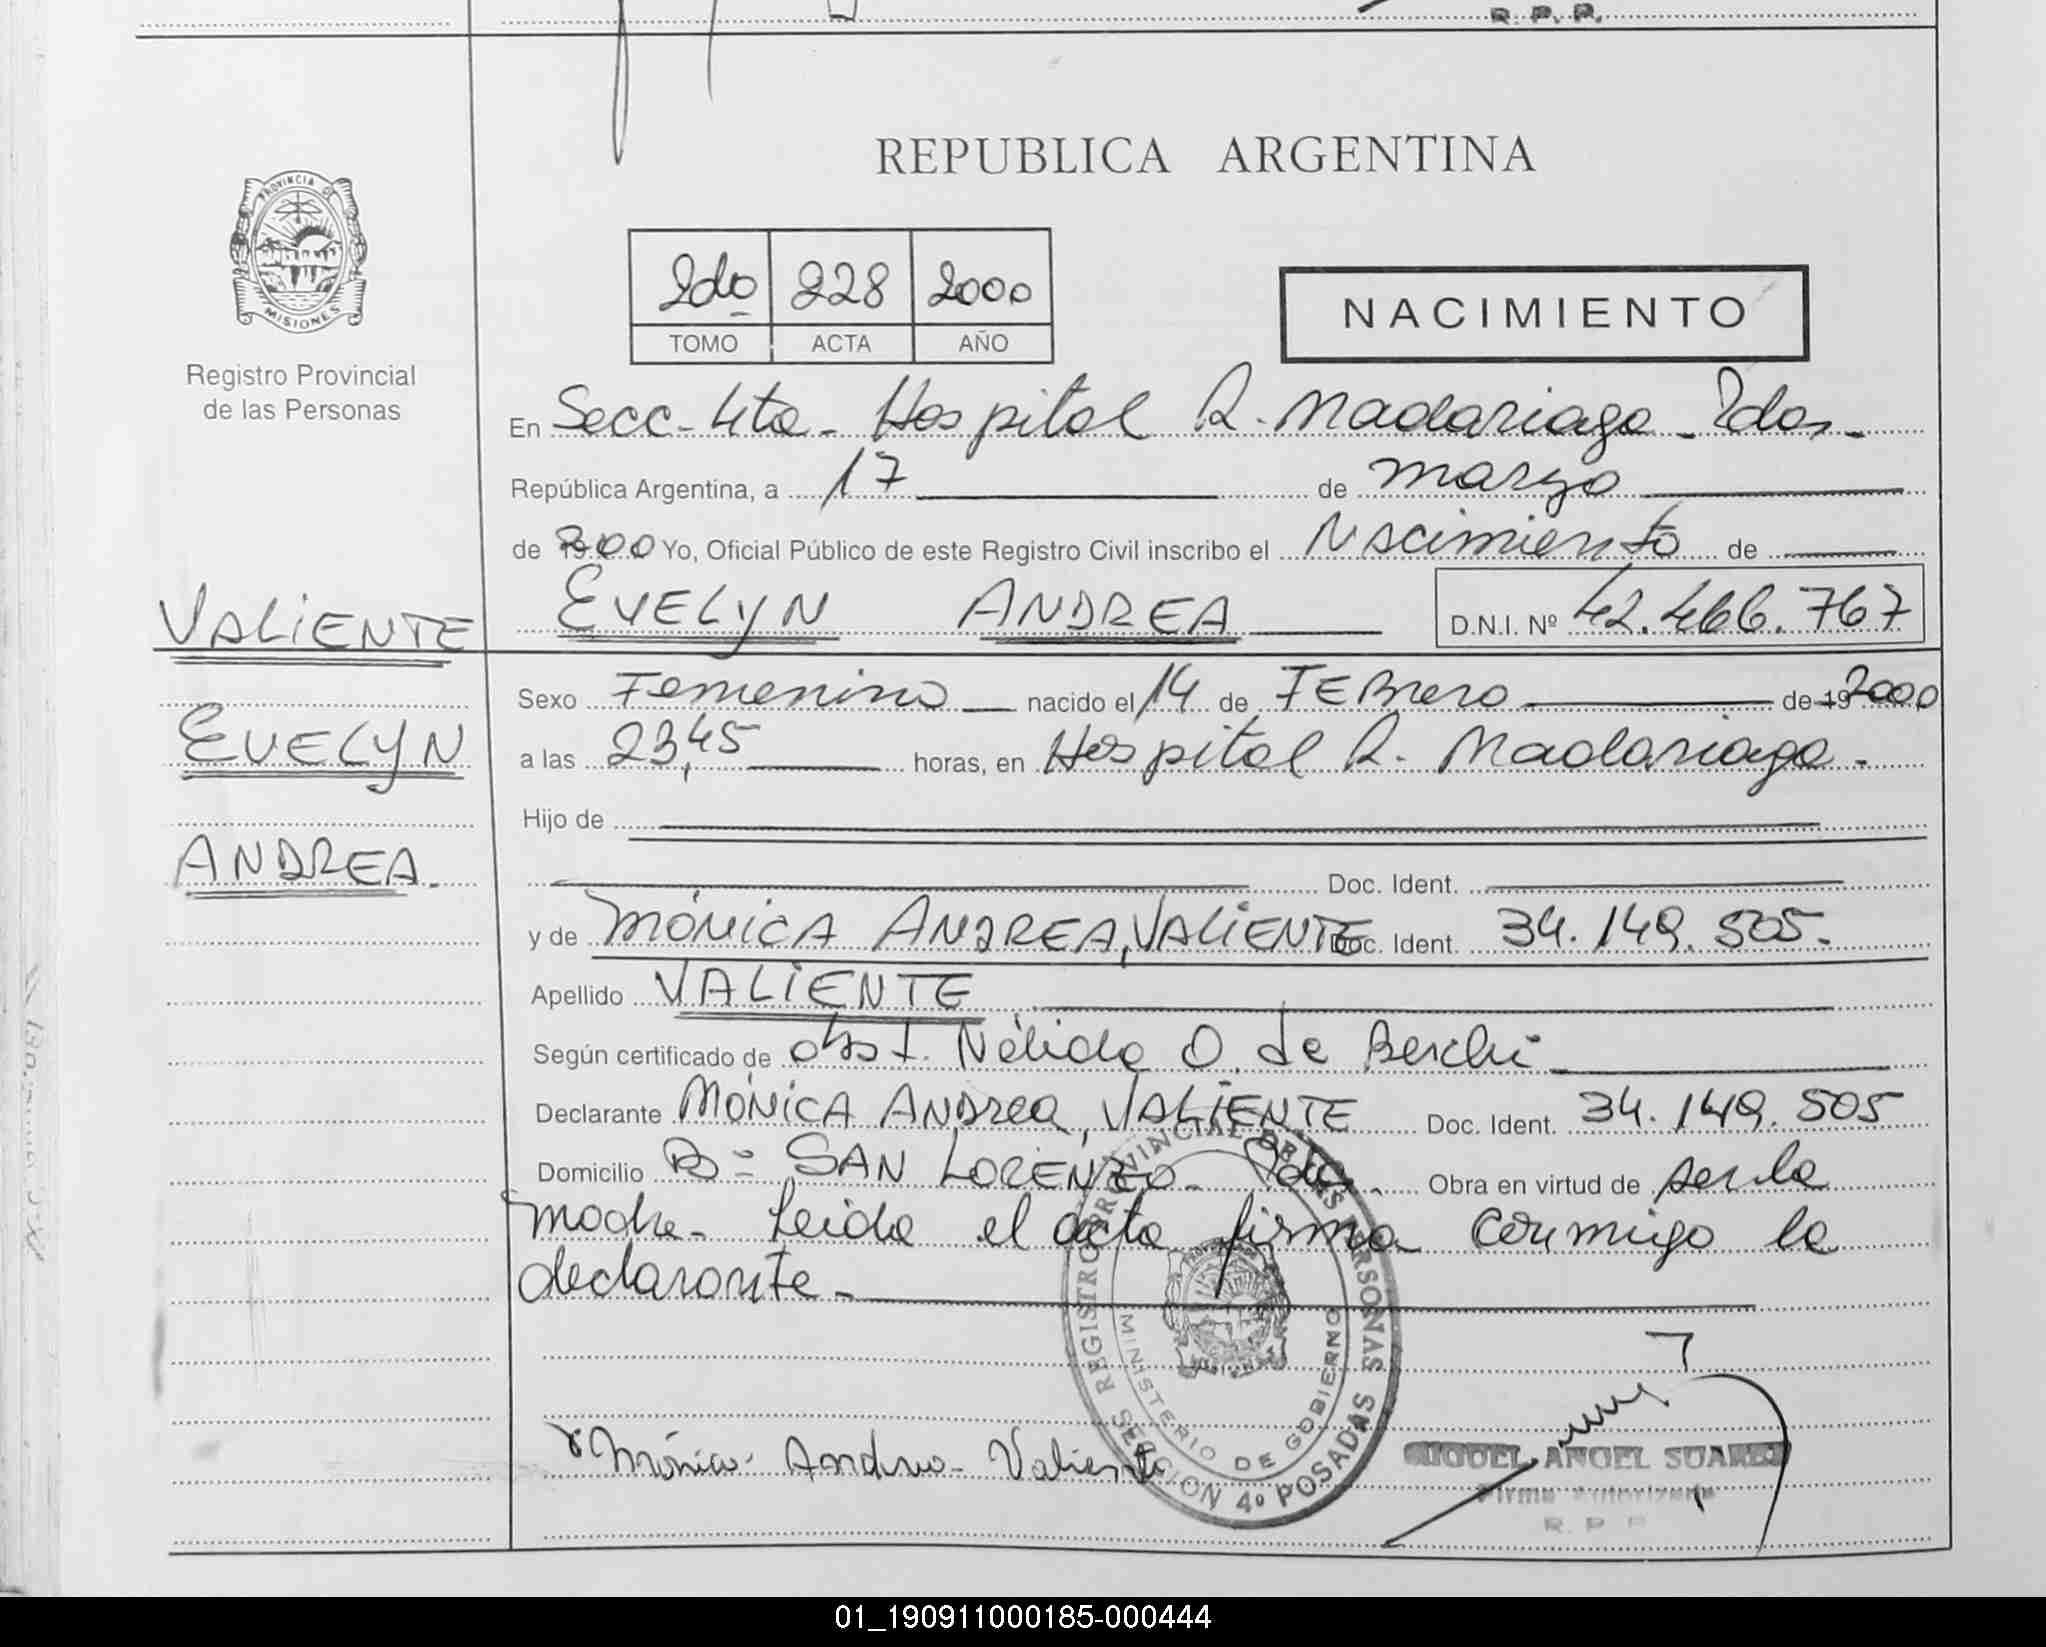 R. P. P.
REPUBLICA ARGENTINA
PROVINCIA DE
MISIONES
Registro Provincial
de las Personas
2do 228 2000
TOMO ACTA AÑO
NACIMIENTO
En Secc. 4ta. Hospital R. Madariaga - Pdas.
República Argentina, a 17 de marzo
de 2000 Yo, Oficial Público de este Registro Civil inscribo el Nacimiento de
VALIENTE EVELYN ANDREA D.N.I. Nº 42.466.767
Sexo Femenino nacido el 14 de FEBrero de 19 2000
EVELYN
a las 23,45 horas, en Hospital R. Madariaga.
Hijo de
ANDREA.
Doc. Ident.
y de MÓNICA ANDREA, VALIENTE Doc. Ident. 34.149.505.
Apellido VALIENTE
Según certificado de obst. Nélida O. de
Declarante MÓNICA ANDREA, VALIENTE Doc. Ident. 34.149.505
Domicilio Bº SAN LORENZO - Pdas. Obra en virtud de ser la
madre - Leída el acta firma conmigo la
declarante.
REGISTRO PROVINCIAL DE LAS PERSONAS
MINISTERIO DE GOBIERNO
SECCION 4º POSADAS
Mónica Andrea Valiente
MIGUEL ANGEL SUAREZ
Firma Autorizada
R. P. P.
01_190911000185-000444